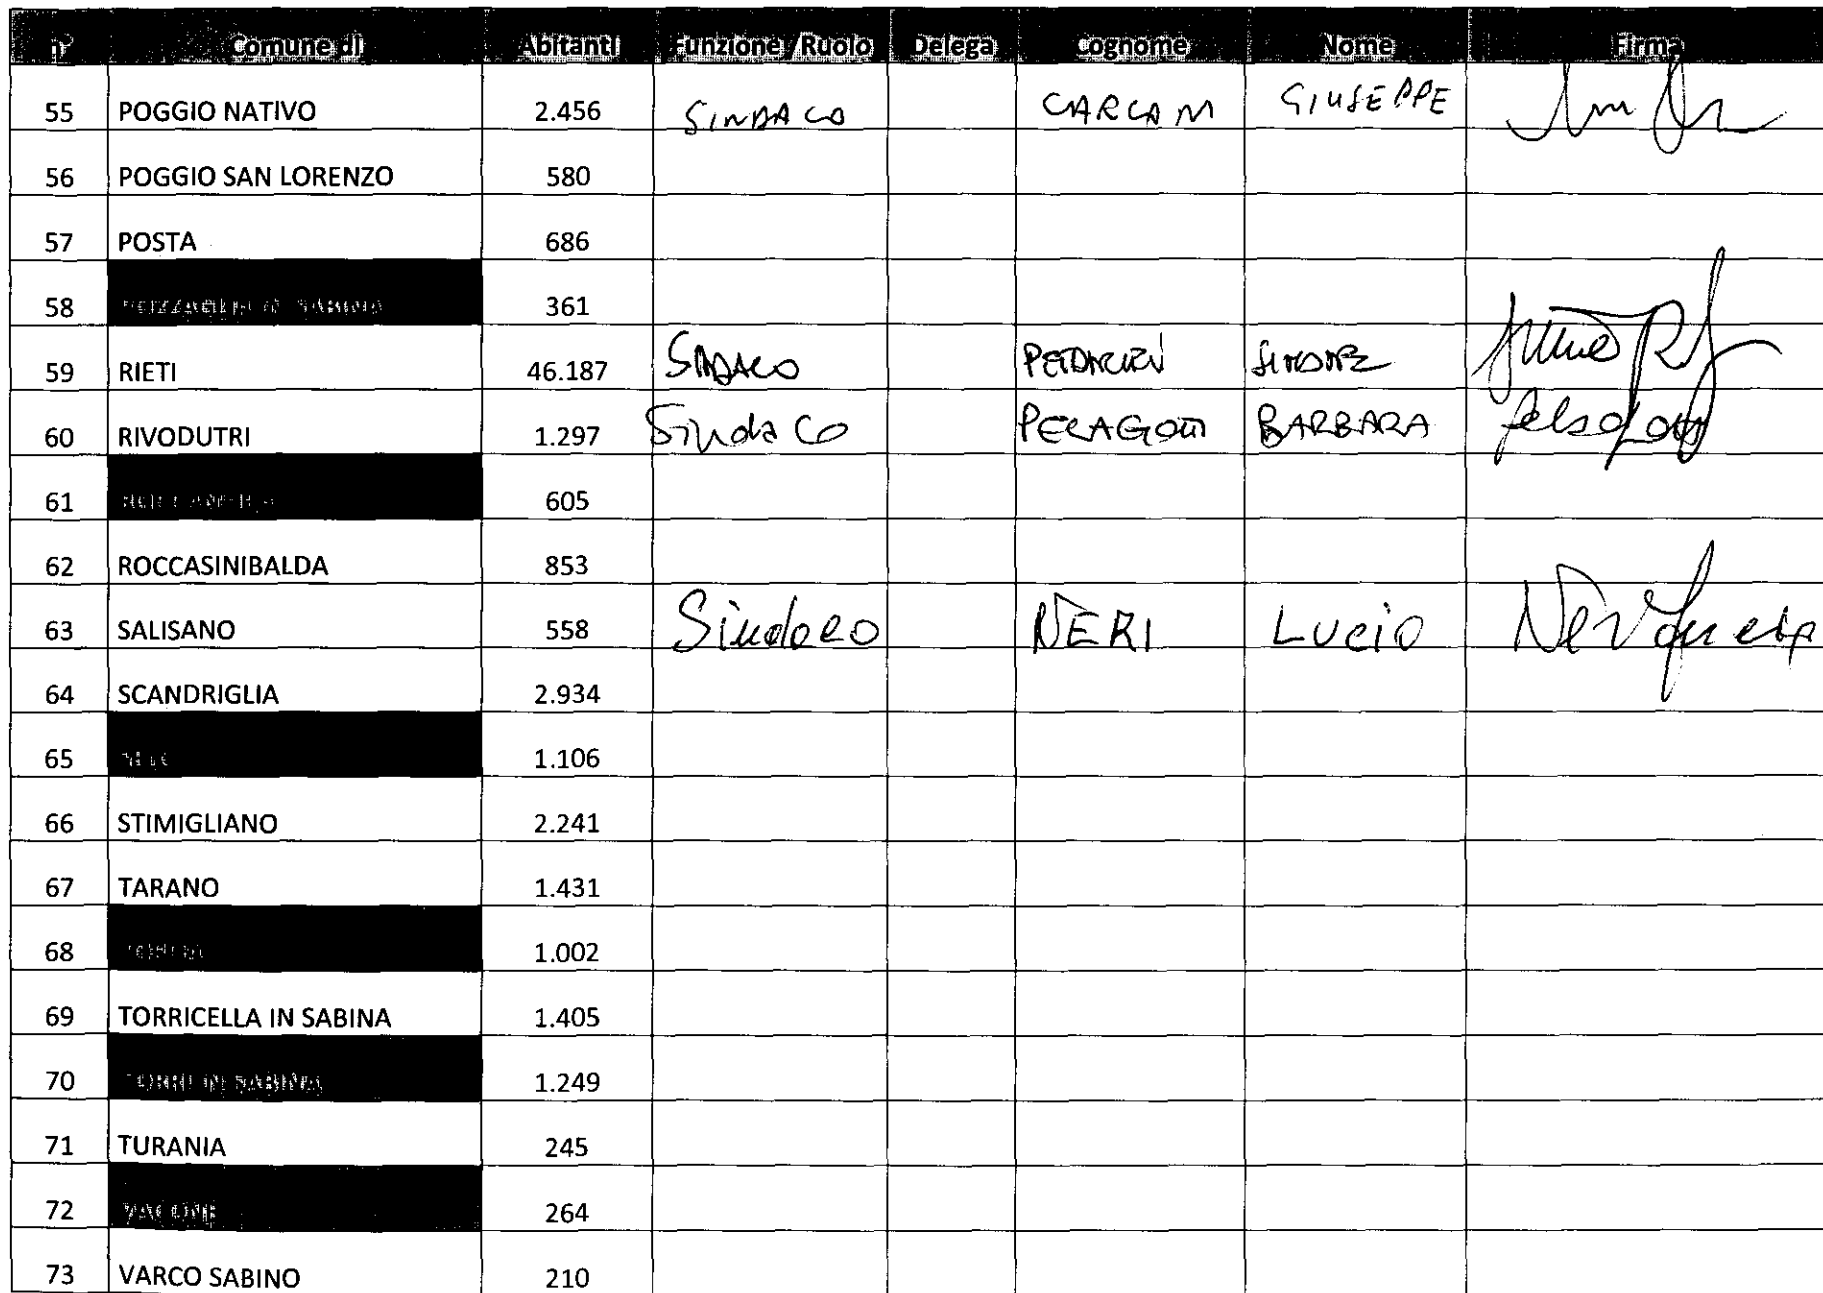 n° Comune di Abitanti Funzione/Ruolo Delega Cognome Nome Firma
55 POGGIO NATIVO 2.456 SINDACO GIUSEPPE
56 POGGIO SAN LORENZO 580
57 POSTA 686
58 POZZAGLIA IN SABINA 361
59 RIETI 46.187 SINDACO
60 RIVODUTRI 1.297 Sindaco BARBARA
61 605
62 ROCCASINIBALDA 853
63 SALISANO 558 Sindaco NERI Lucio
64 SCANDRIGLIA 2.934
65 1.106
66 STIMIGLIANO 2.241
67 TARANO 1.431
68 1.002
69 TORRICELLA IN SABINA 1.405
70 TORRI IN SABINA 1.249
71 TURANIA 245
72 VACONE 264
73 VARCO SABINO 210